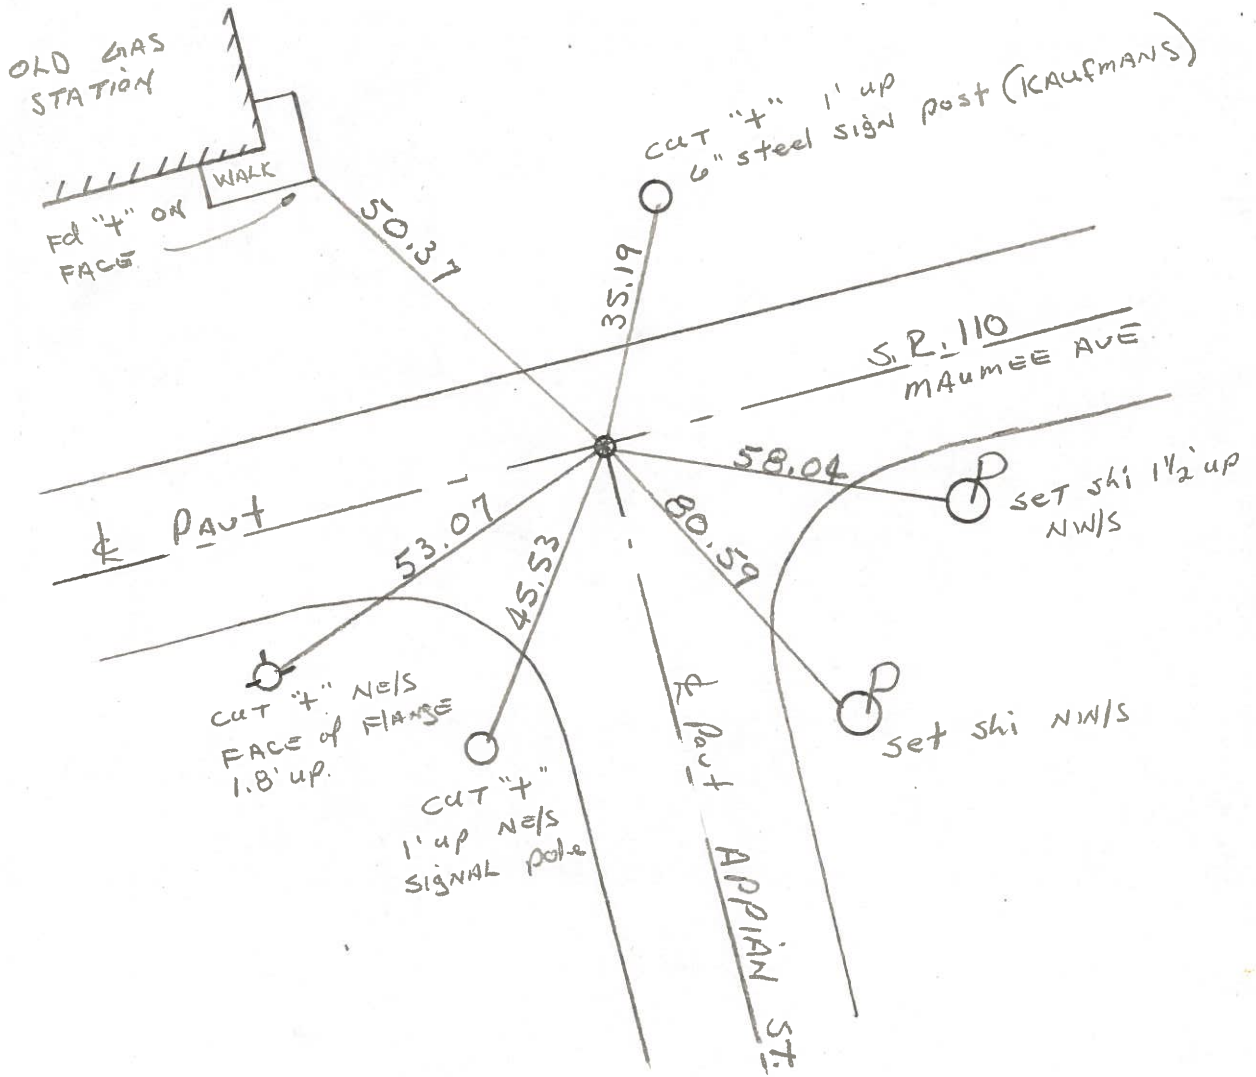 OLD GAS
STATION
WALK
Fd "+" ON
FACE
50.37
CUT "+" 1' up
6" steel sign post (KAUFMANS)
35.19
S.R. 110
MAUMEE AVE.
58.04
SET shi 1½' up
NW/S
℄ PAVT
53.07
45.53
80.59
CUT "+" NE/S
FACE of FLANGE
1.8' up.
CUT "+"
1' up NE/S
SIGNAL pole
Set shi NW/S
℄ PAVT
APPIAN ST.